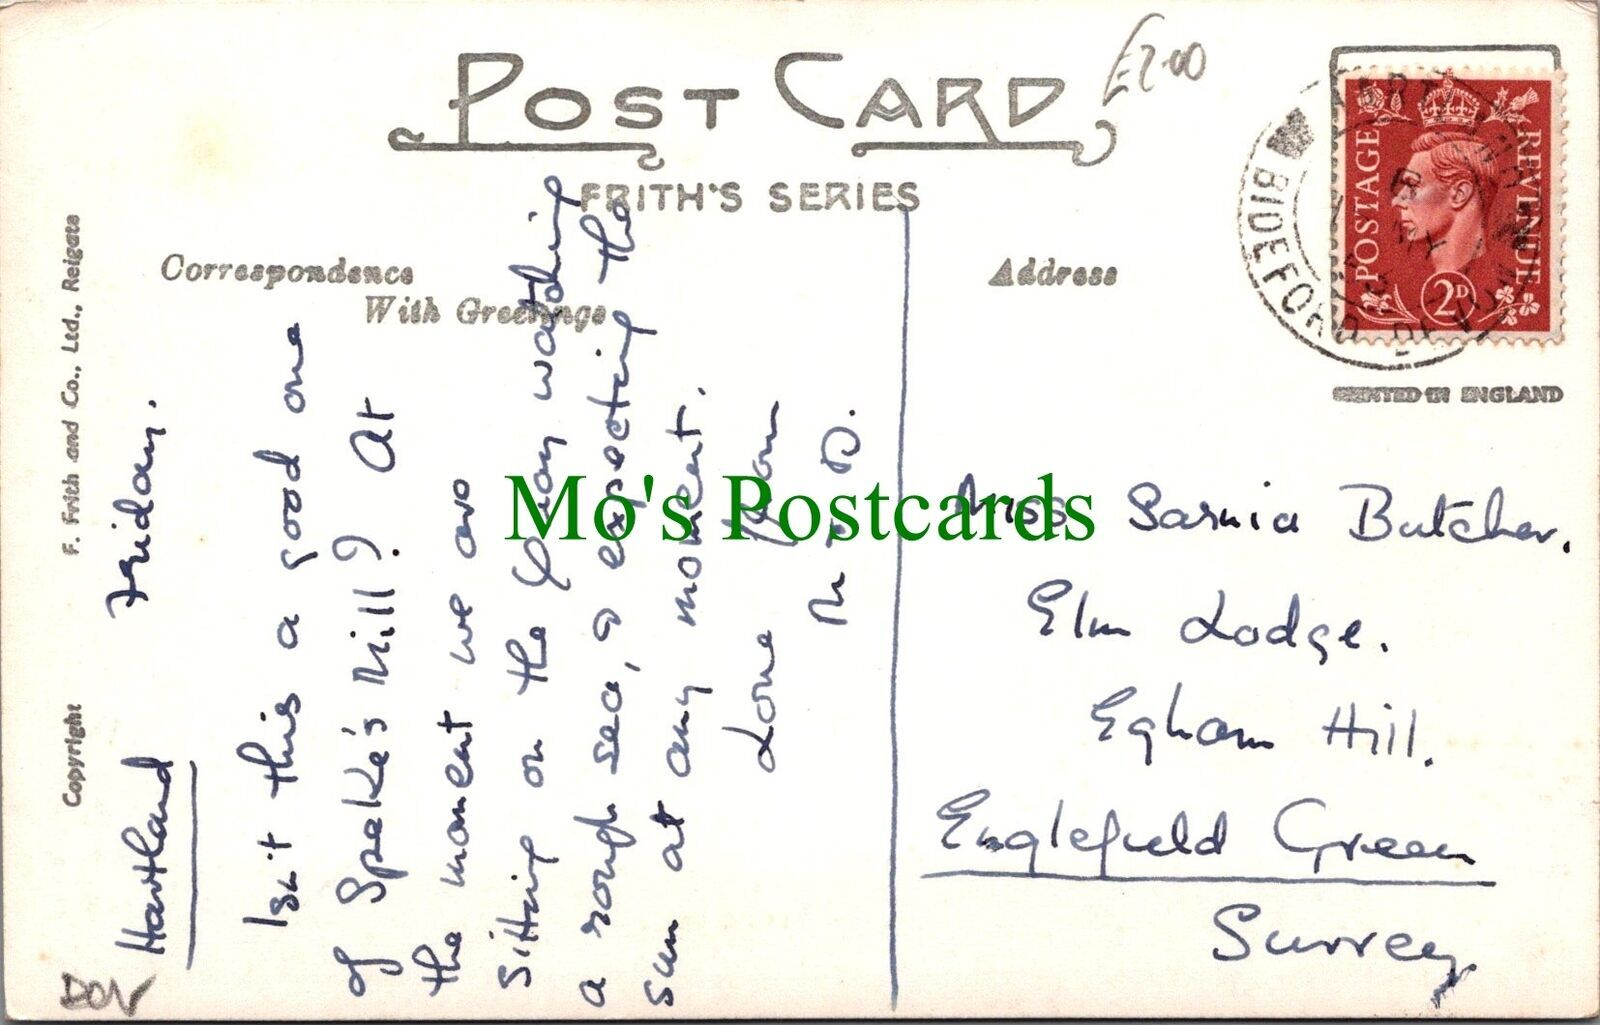 POST CARD
£2.00
FRITH'S SERIES
Correspondence
With Greetings
Address
POSTAGE
REVENUE
2D
BIDEFORD DEVON
PRINTED IN ENGLAND
F. Frith and Co., Ltd., Reigate
Copyright
Hartland
Friday.
Isn't this a good one
of Speke's Mill? At
the moment we are
sitting on the Quay watching
a rough sea, & expecting the
sun at any moment.
Love from
M & D.
Miss Sarnia Butcher.
Elm Lodge.
Egham Hill.
Englefield Green
Surrey
DEV
Mo's Postcards